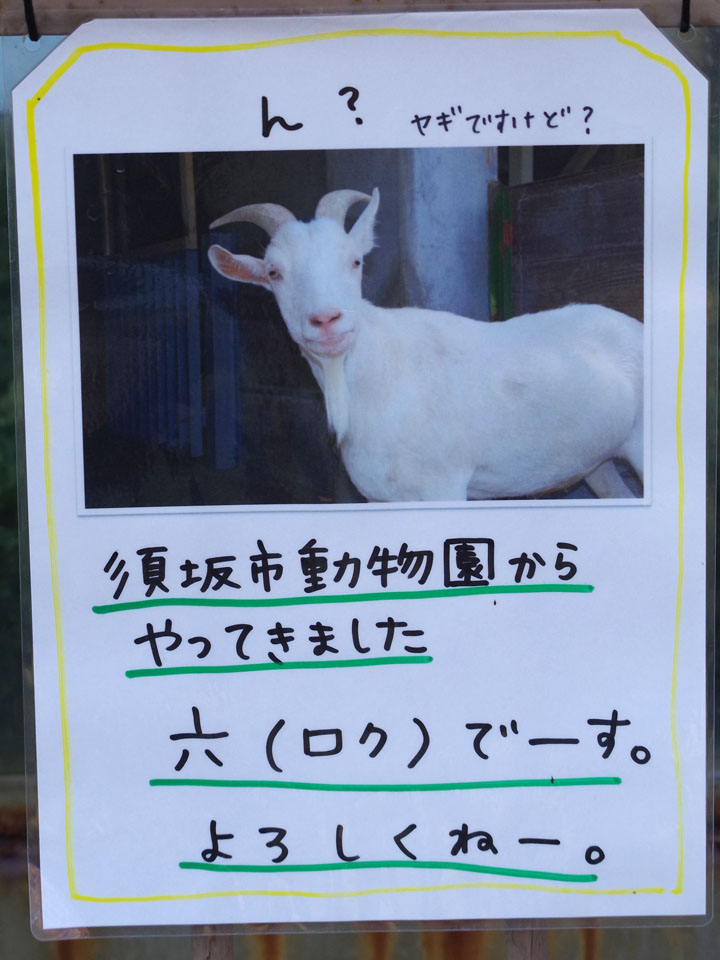 ん？
ヤギですけど？
須坂市動物園から
やってきました
六（ロク）でーす。
よろしくねー。